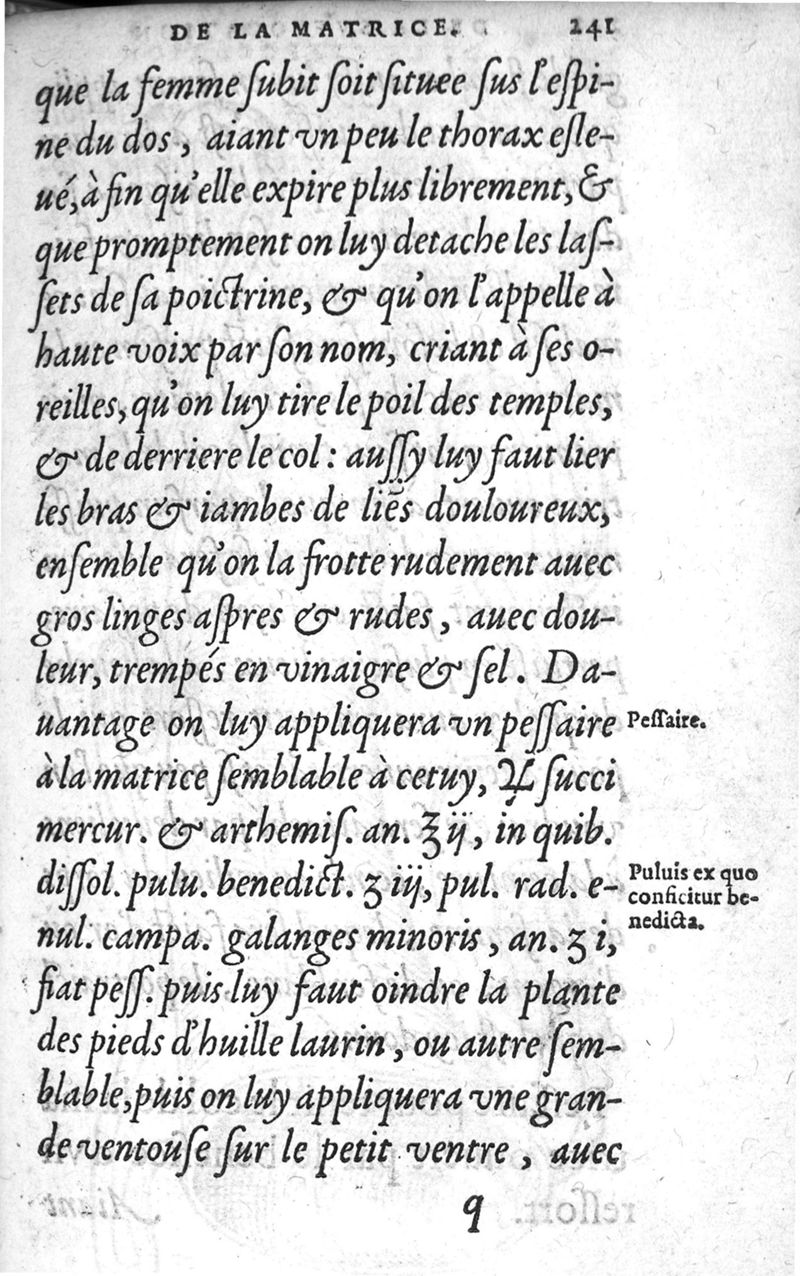 DE LA MATRICE. 241
que la femme ſubit ſoit ſituee ſus l'eſpi-
ne du dos, aiant vn peu le thorax eſle-
ué, à fin qu'elle expire plus librement, &
que promptement on luy detache les laſ-
ſets de ſa poictrine, & qu'on l'appelle à
haute voix par ſon nom, criant à ſes o-
reilles, qu'on luy tire le poil des temples,
& de derriere le col : auſſy luy faut lier
les bras & iambes de liẽs douloureux,
enſemble qu'on la frotte rudement auec
gros linges aſpres & rudes, auec dou-
leur, trempés en vinaigre & ſel. Da-
uantage on luy appliquera vn peſſaire
Peſſaire.
à la matrice ſemblable à cetuy, ♃ ſucci
mercur. & arthemiſ. an. ℥ ij, in quib.
diſſol. pulu. benedict. ʒ iij, pul. rad. e-
Puluis ex quo
conficitur be-
nedicta.
nul. campa. galanges minoris, an. ʒ i,
fiat peſſ. puis luy faut oindre la plante
des pieds d'huille laurin, ou autre ſem-
blable, puis on luy appliquera vne gran-
de ventouſe ſur le petit ventre, auec
q